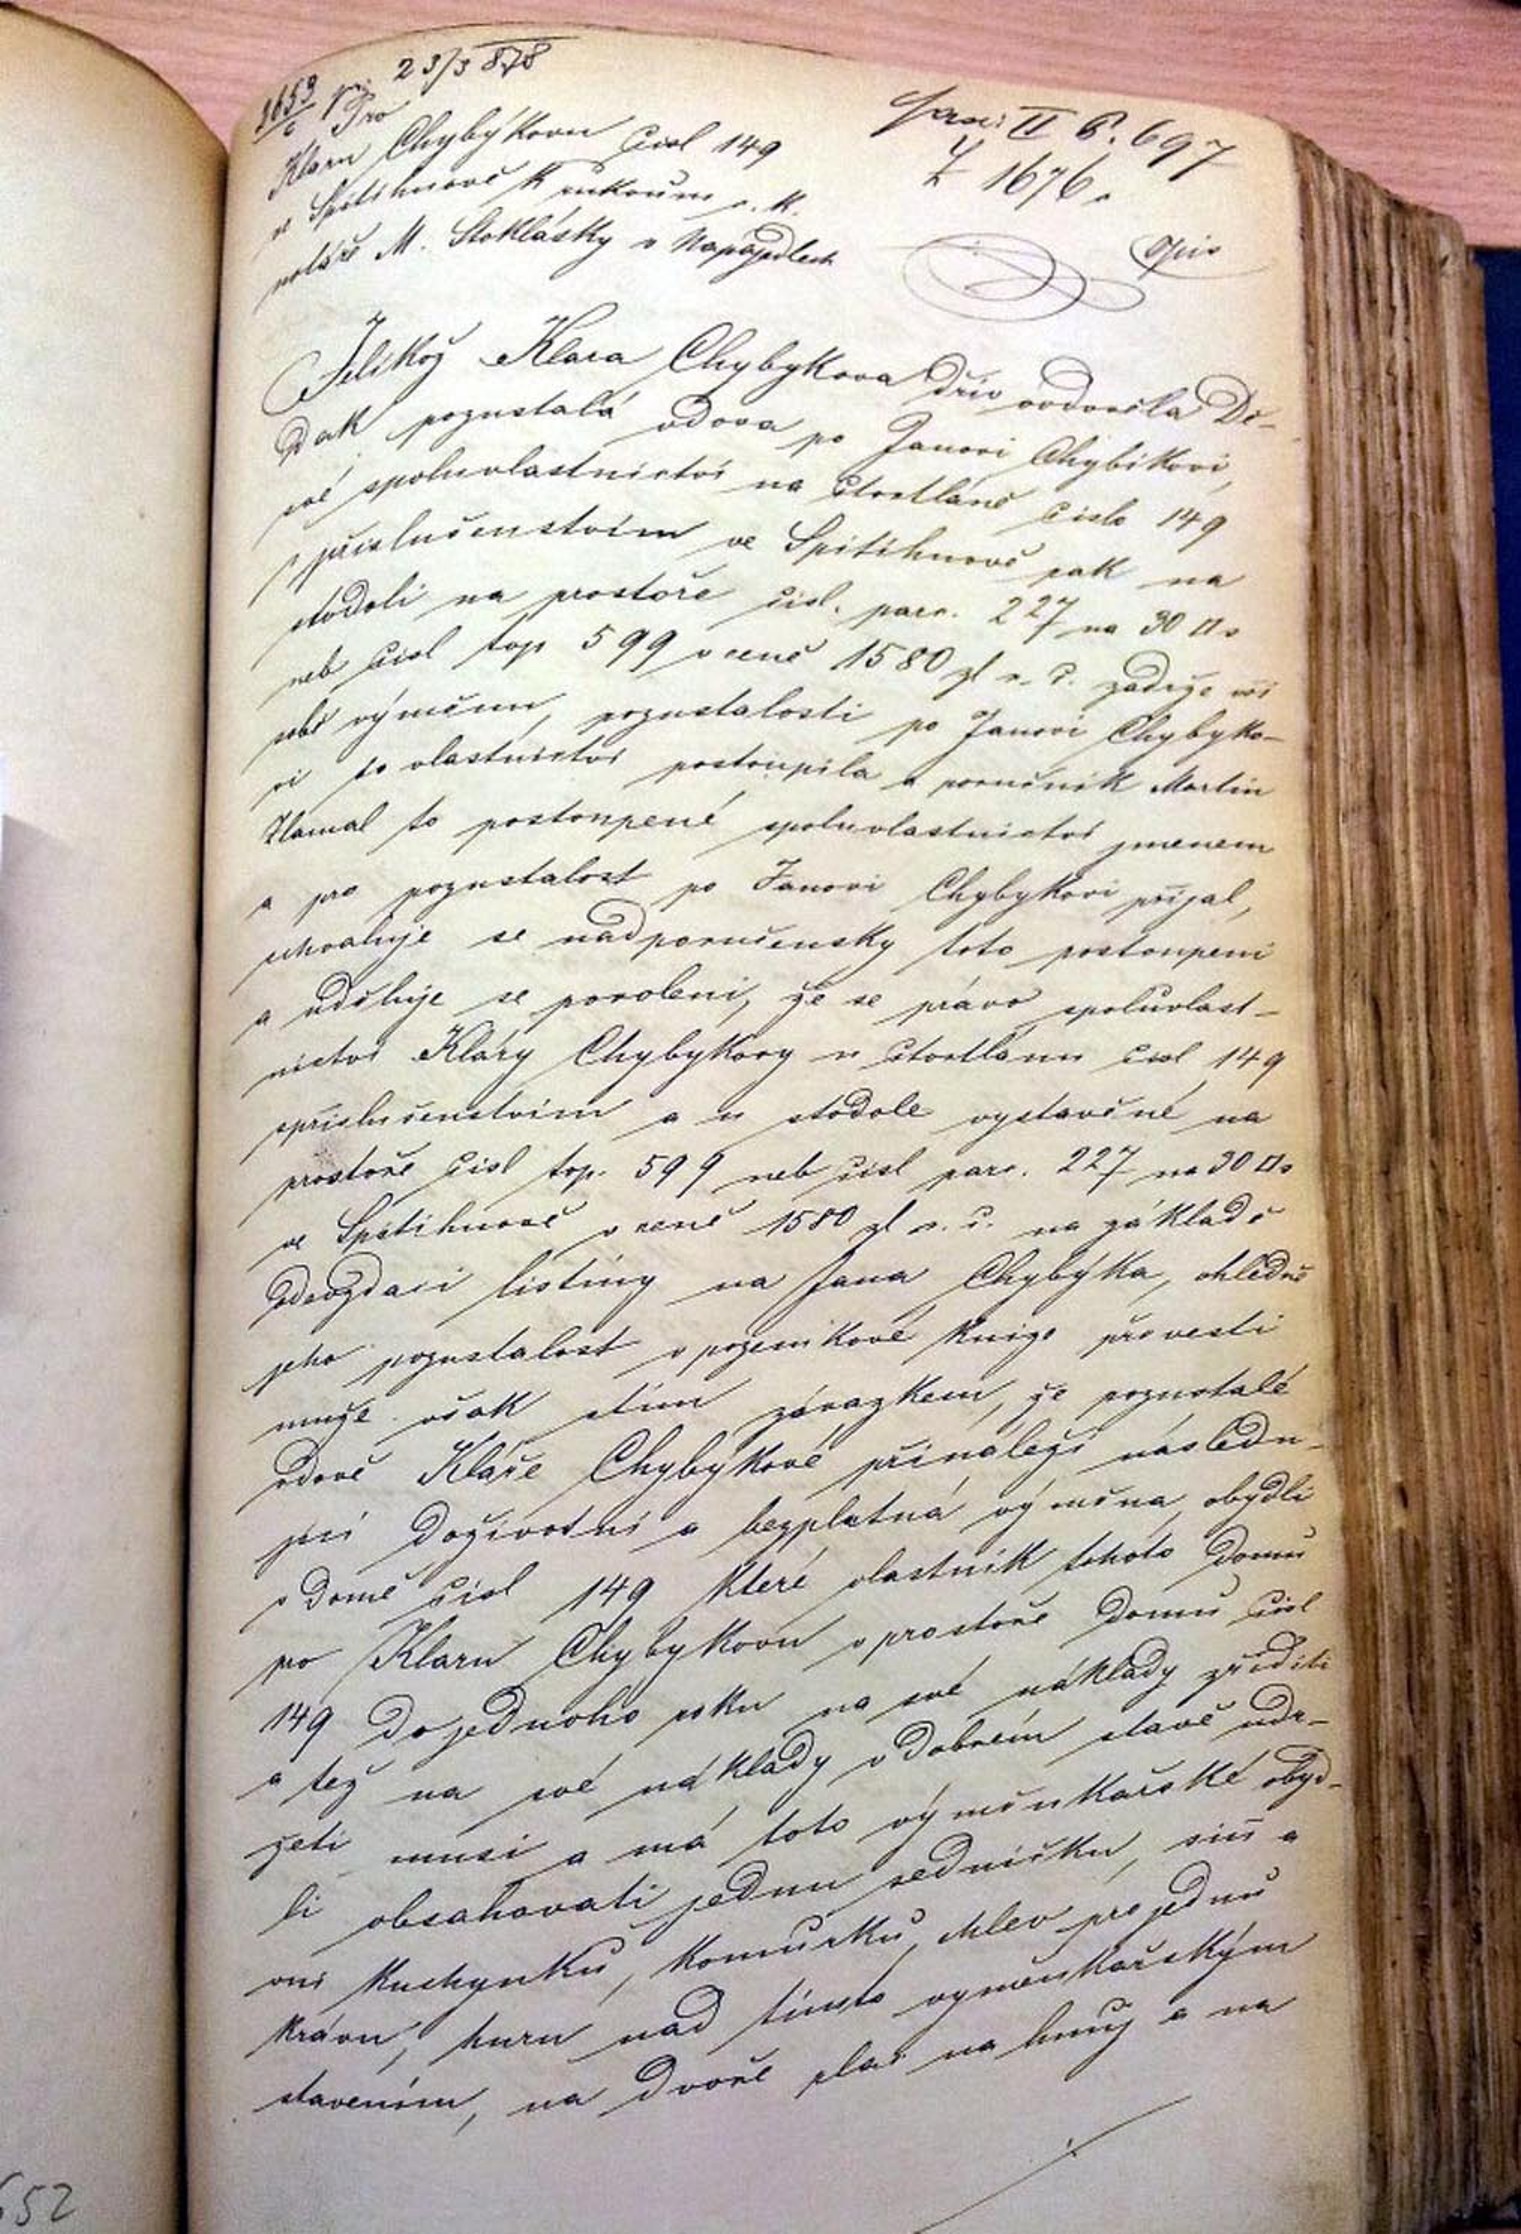 1653/c pr. 23/3 878
Pro
Klaru Chybýkovu čisl 149
ve Spitihnově k rukoum c. k.
notáře M. Stoklásky v Napajedlech
praes: II 6. 697
Z 1676.
Opis
Jelikož Klara Chybykova dřiv ovdověla De-
dak pozustalá vdova po Janovi Chybikovi,
své spoluvlastnictví na čtvrtláně čislo 149
s přislušenstvím ve Spitihnově pak na
stodoli na prostoře čisl. parc. 227 na 30 □°
neb čisl top 599 v ceně 1580 zl r. č. zadrže vši
sobě výměnu, pozustalosti po Janovi Chybyko-
vi to vlastnictví postoupila a poručnik Martin
Hamal to postoupené spoluvlastnictví jmenem
a pro pozustalost po Janovi Chybykovi přijal,
schvaluje se nadporučensky toto postoupeni
a uděluje se povoleni, že se právo spoluvlast-
nictví Kláry Chybykovy v čtvrtlánu čisl 149
spřislušenstvím a v stodole vystavěné na
prostoře čisl top. 599 neb čisl parc. 227 na 30 □°
ve Spitihnově v ceně 1580 zl r. č. na základě
odevzdaci listiny na Jana Chybýka, ohledně
jeho pozustalost v pozemkové knize převesti
muže však stim závazkem, že pozustalé
vdově Kláře Chybýkové přináleži následu-
jící doživotní a bezplatná výměna, obydli
v domě čisl 149 které vlastnik tohoto domu
pro Klaru Chybykovu v prostoře domu čisl
149 do jednoho roku na své náklady zřiditi
a též na své náklady v dobrém stavě udr-
žeti musi a má toto výměnkařské obyd-
li obsahovati jednu sedničku, siň a
vni kuchynku, komůrku, chlev pro jednu
krávu, huru nad timto vyměnkařským
stavením, na dvoře plac na hnuj a na
652